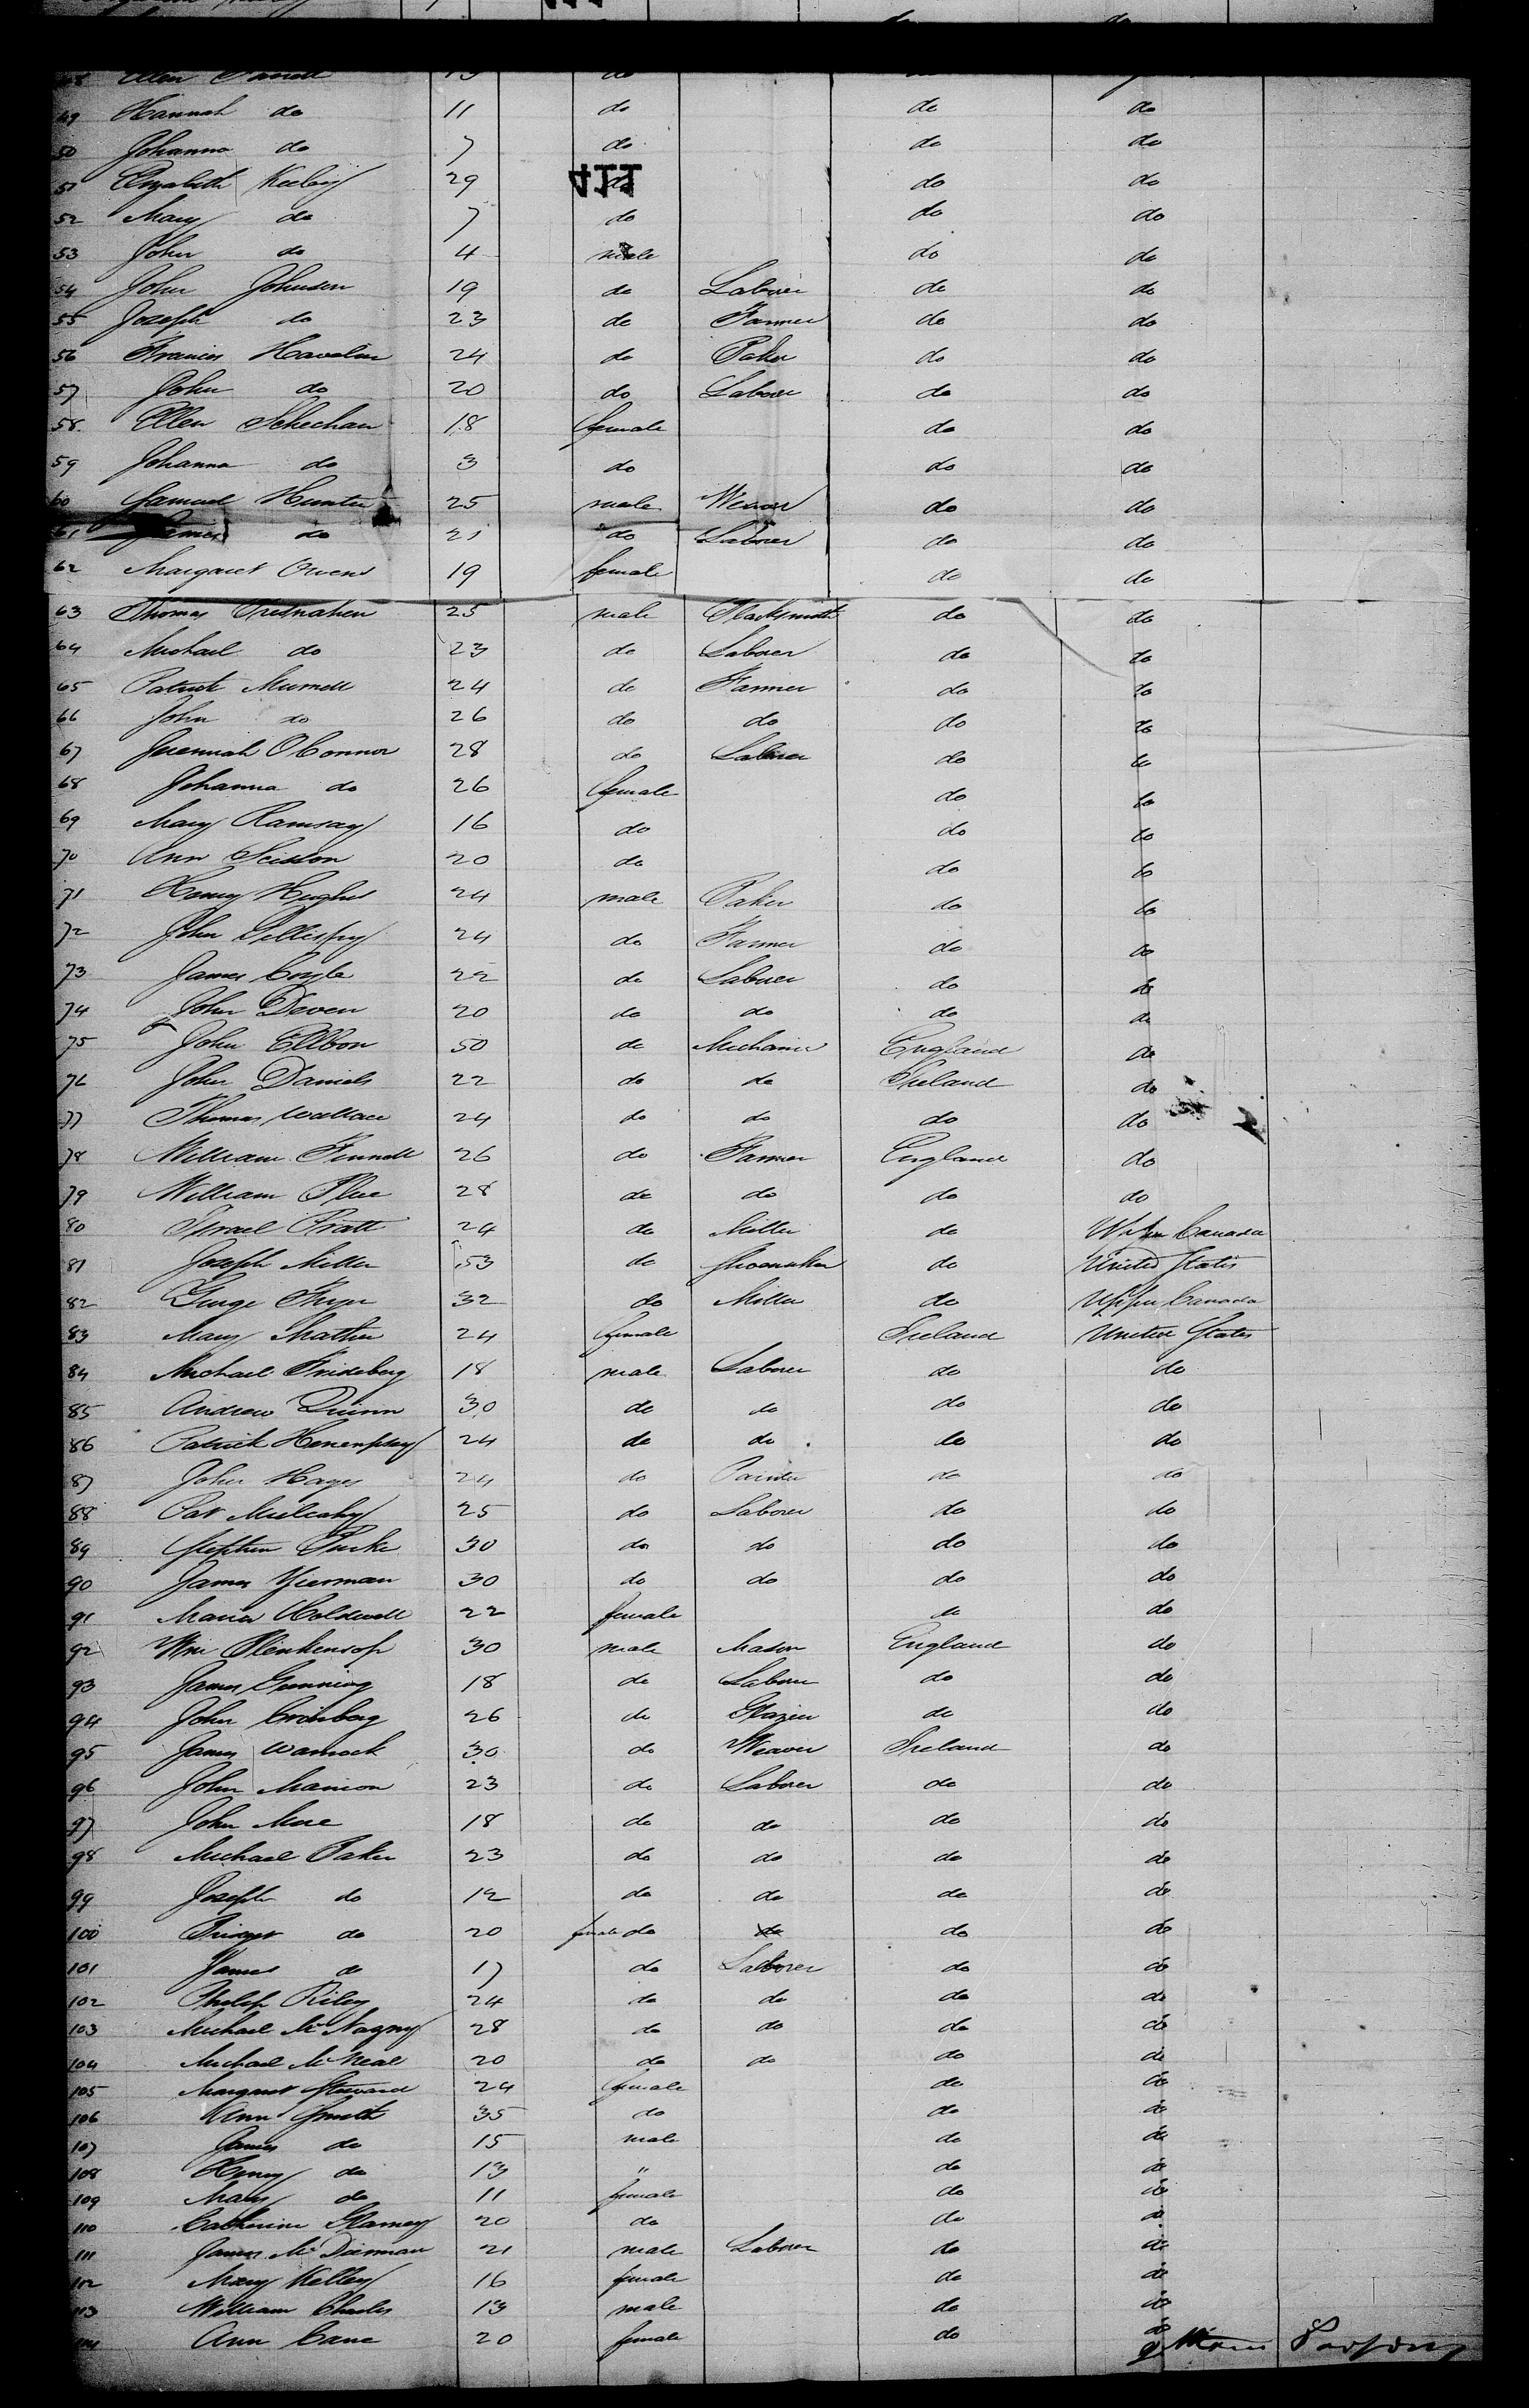 49 Hannah do 11 do do do
50 Johanna do 7 do do do
51 Elizabeth Keeley 29 do do do
52 Mary do 7 do do do
53 John do 4 male do do
54 John Johnson 19 do Laborer do do
55 Joseph do 23 do Farmer do do
56 Francis Havelin 24 do Baker do do
57 John do 20 do Laborer do do
58 Ellen Schechan 18 female do do
59 Johanna do 3 do do do
60 Samuel Hunter 25 male Weaver do do
61 James do 21 do Laborer do do
62 Margaret Owens 19 female do do
63 Thomas 25 male Blacksmith do do
64 Michael do 23 do Laborer do do
65 Patrick 24 do Farmer do do
66 John do 26 do do do do
67 Jeremiah OConnor 28 do Laborer do do
68 Johanna do 26 female do do
69 Mary Ramsay 16 do do do
70 Ann 20 do do do
71 Henry Hughes 24 male Baker do do
72 John Gillispy 24 do Farmer do do
73 James Coyle 22 do Laborer do do
74 John Deven 20 do do do do
75 John Ellbon 50 do Mechanic England do
76 John Daniels 22 do do Ireland do
77 Thomas Wallace 24 do do do do
78 William Finnell 26 do Farmer England do
79 William 28 do do do do
80 Israel Pratt 24 do Miller do Upper Canada
81 Joseph Miller 53 do Shoemaker do United States
82 George Fryer 32 do Miller do Upper Canada
83 Mary Mather 24 female Ireland United States
84 Michael 18 male Laborer do do
85 Andrew Quinn 30 do do do do
86 Patrick 24 do do do do
87 John Hayes 24 do Painter do do
88 Pat Mulcahy 25 do Laborer do do
89 Stephen Burke 30 do do do do
90 James 30 do do do do
91 Maria Holdwell 22 female do do
92 Wm Blenkensop 30 male Mason England do
93 James Gunning 18 do Laborer do do
94 John 26 do Glazier do do
95 James Warnock 30 do Weaver Ireland do
96 John Manion 23 do Laborer do do
97 John More 18 do do do do
98 Michael Baker 23 do do do do
99 Joseph do 12 do do do do
100 Bridget do 20 female do do do do
101 James do 17 do Laborer do do
102 Philip Riley 24 do do do do
103 Michael McNagny 28 do do do do
104 Michael McNeal 20 do do do do
105 Margaret Steward 24 female do do
106 Ann Smith 35 do do do
107 James do 15 male do do
108 Henry do 13 " do do
109 Mary do 11 female do do
110 Catherine 20 do do do
111 James McDierman 21 male Laborer do do
112 Mary Kelley 16 female do do
113 William Charles 13 male do do
114 Ann Cane 20 female do do